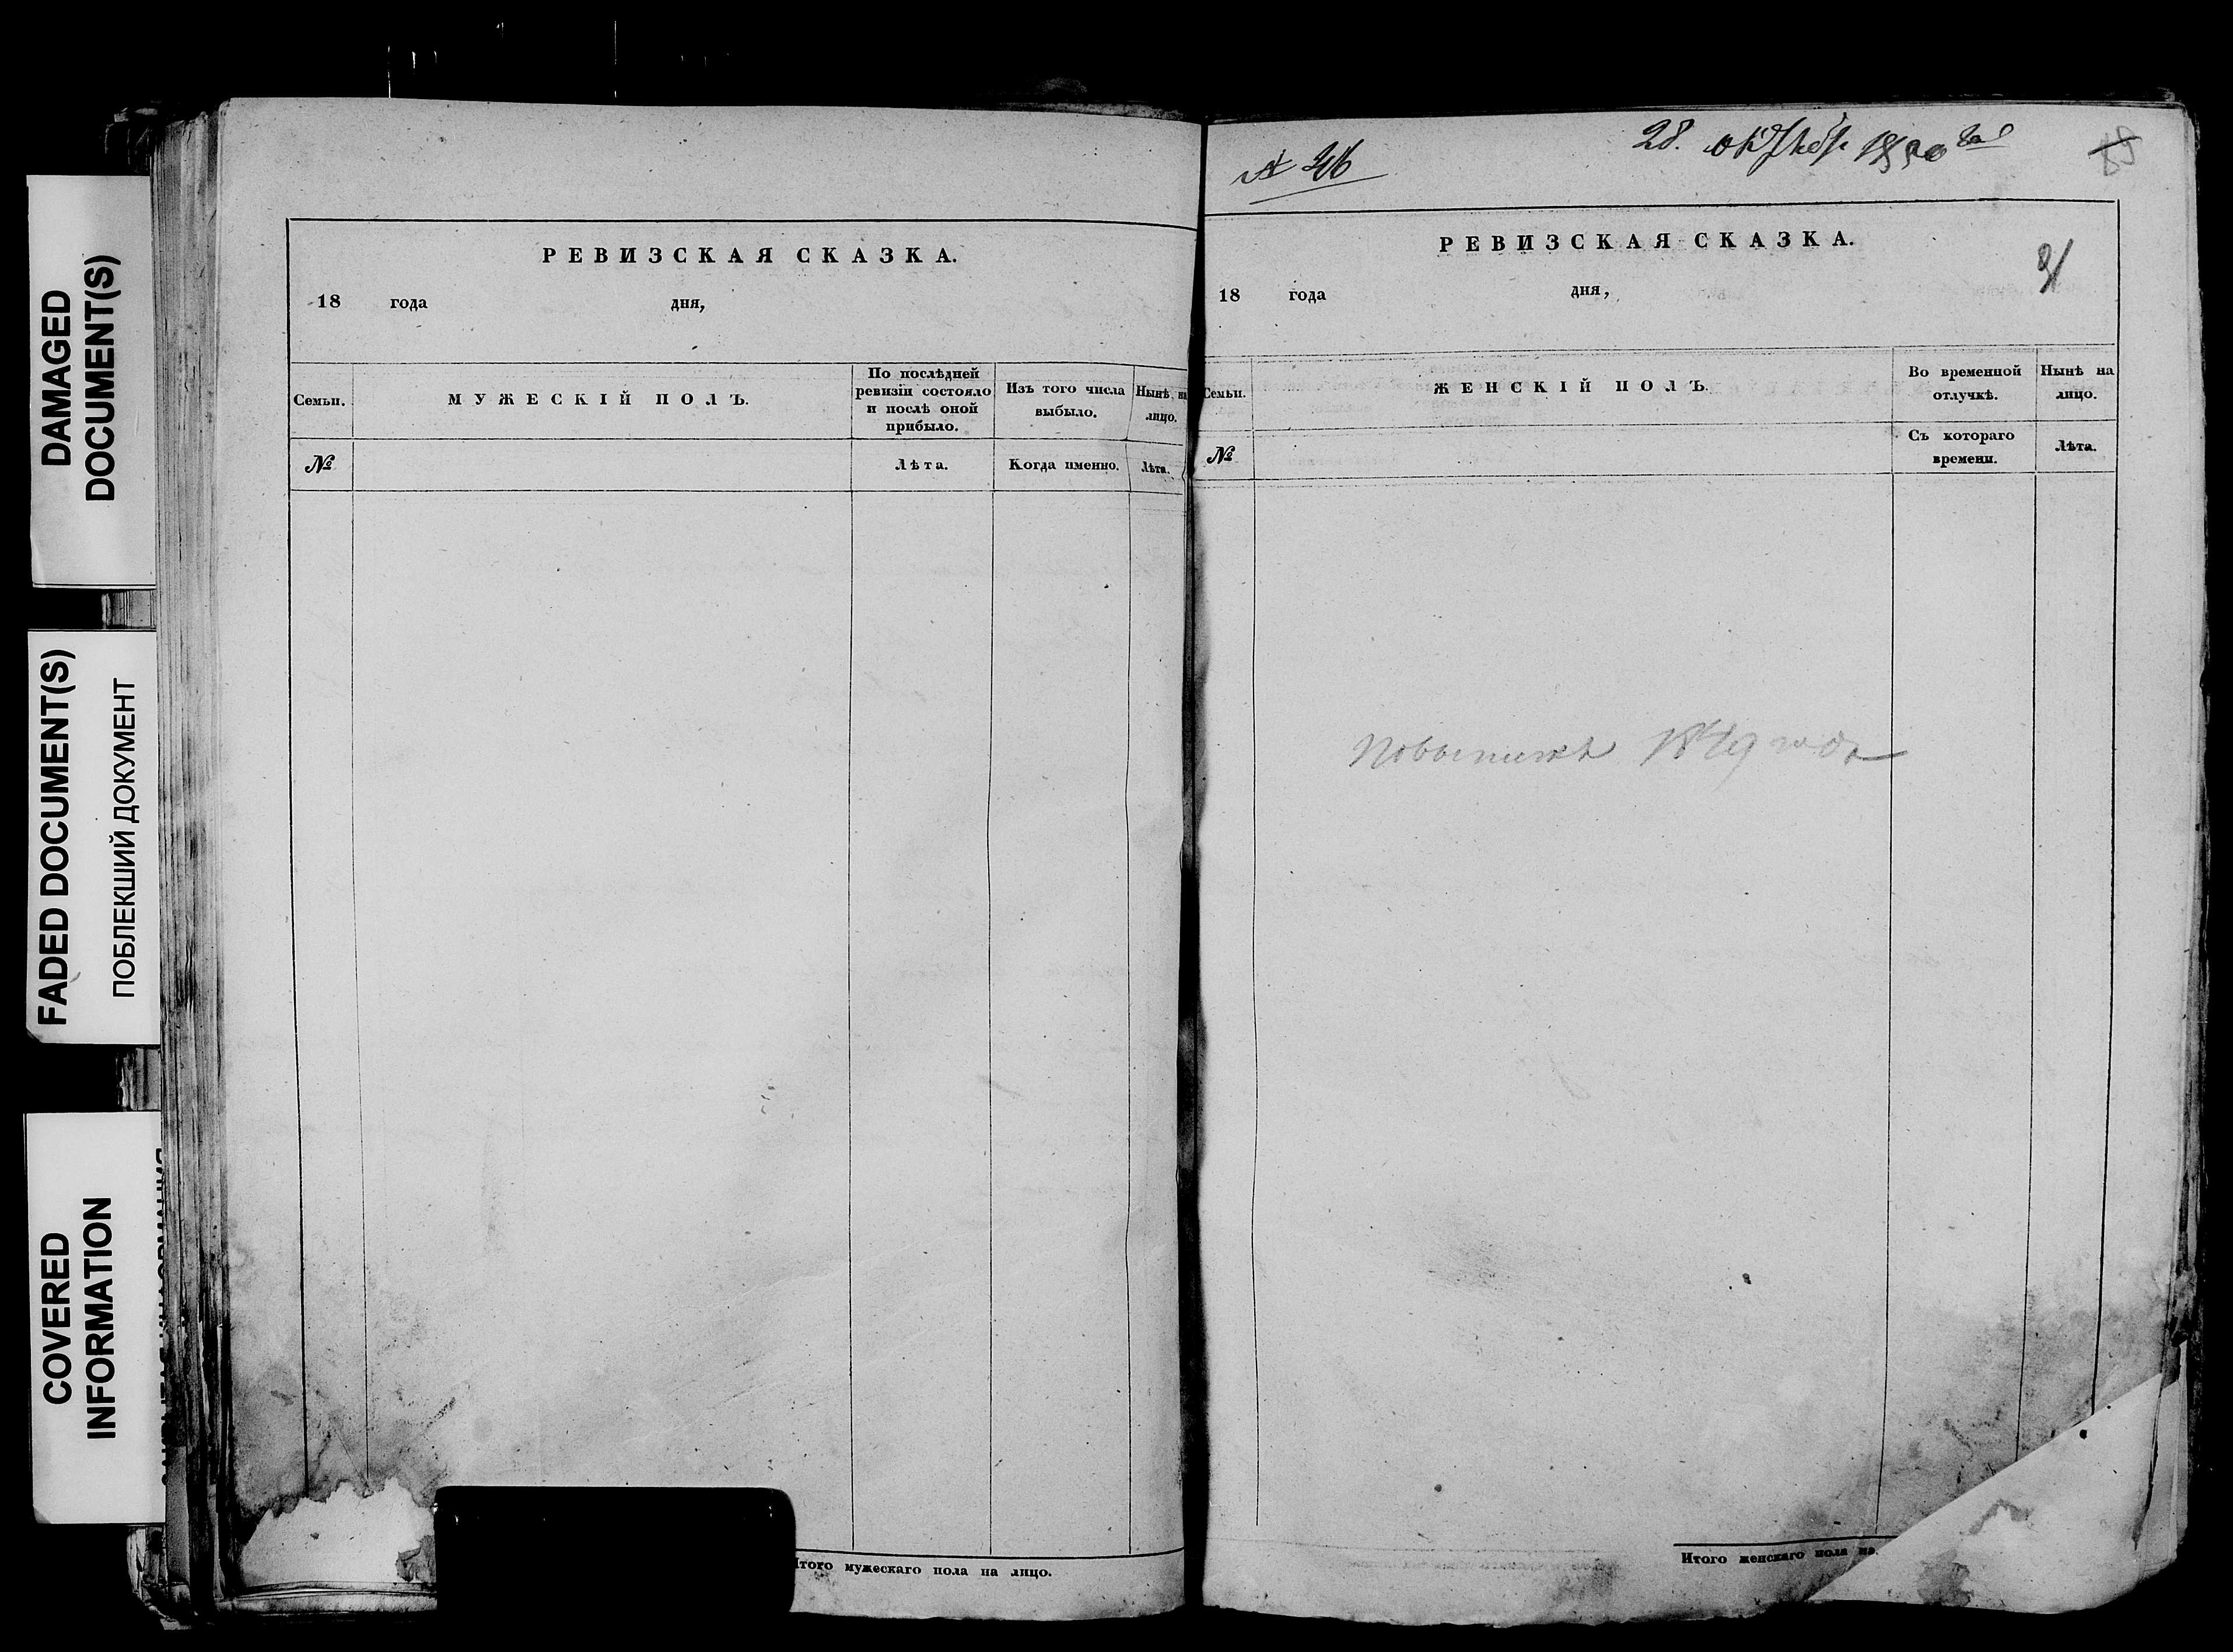 DAMAGED
DOCUMENT(S)
FADED DOCUMENT(S)
ПОБЛЕКШИЙ ДОКУМЕНТ
COVERED
INFORMATION
РЕВИЗСКАЯ СКАЗКА.
18 года дня,
Семьи.
МУЖЕСКІЙ ПОЛЪ.
По послѣдней
ревизіи состояло
и послѣ оной
прибыло.
Изъ того числа
выбыло.
Нынѣ на
лицо.
№
Лѣта.
Когда именно.
Лѣта.
Итого мужескаго пола на лицо.
№ 46
28. октября 1850 года
РЕВИЗСКАЯ СКАЗКА.
18 года дня,
Семьи.
ЖЕНСКІЙ ПОЛЪ.
Во временной
отлучкѣ.
Нынѣ на
лицо.
№
Съ котораго
времени.
Лѣта.
1849 года
Итого женскаго пола на